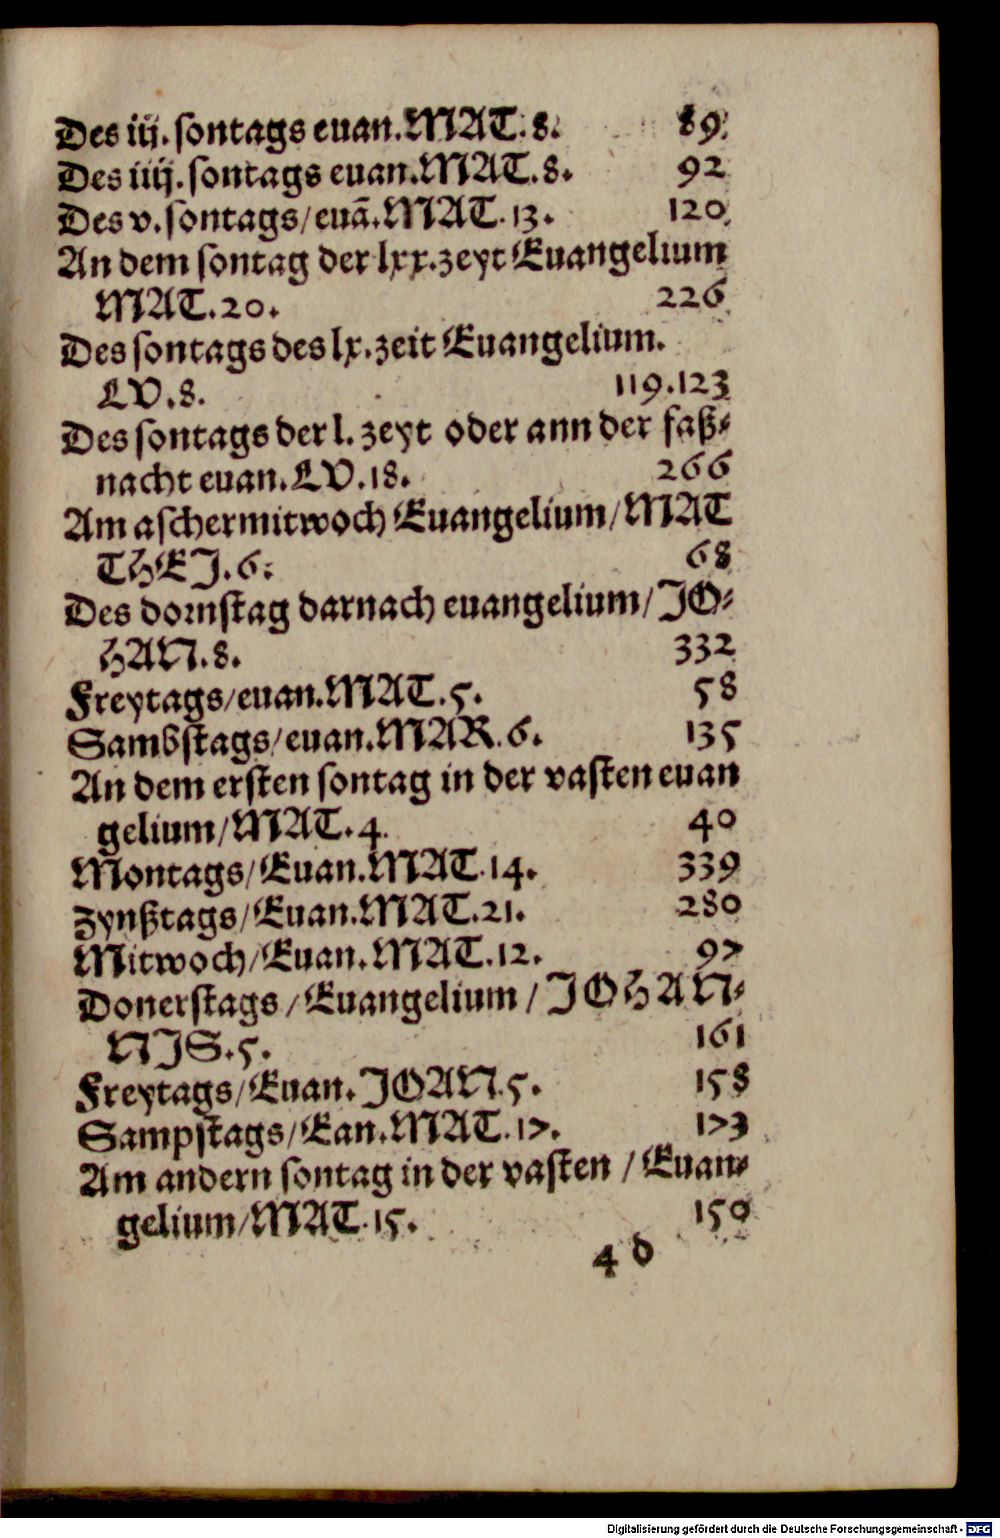 Des iij. sontags euan. MAT. 8. 89
Des iiij. sontags euan. MAT. 8. 92
Des v. sontags/ euã. MAT. 13. 120
An dem sontag der lxx. zeyt Euangelium
MAT. 20. 226
Des sontags des lx. zeit Euangelium.
LV. 8. 119.123
Des sontags der l. zeyt oder ann der faß⸗
nacht euan. LV. 18. 266
Am aschermitwoch Euangelium/ MAT
THEJ. 6. 68
Des dornstag darnach euangelium/ JO⸗
HAN. 8. 332
Freytags/ euan. MAT. 5. 58
Sambstags/ euan. MAR. 6. 135
An dem ersten sontag in der vasten euan
gelium/ MAT. 4. 40
Montags/ Euan. MAT. 14. 339
zynßtags/ Euan. MAT. 21. 280
Mitwoch/ Euan. MAT. 12. 97
Donerstags / Euangelium / JOHAN⸗
NJS. 5. 161
Freytags/ Euan. JOAN. 5. 158
Sampstags/ Ean. MAT. 17. 173
Am andern sontag in der vasten / Euan⸗
gelium/ MAT. 15. 150
4 d
Digitalisierung gefördert durch die Deutsche Forschungsgemeinschaft - DFG